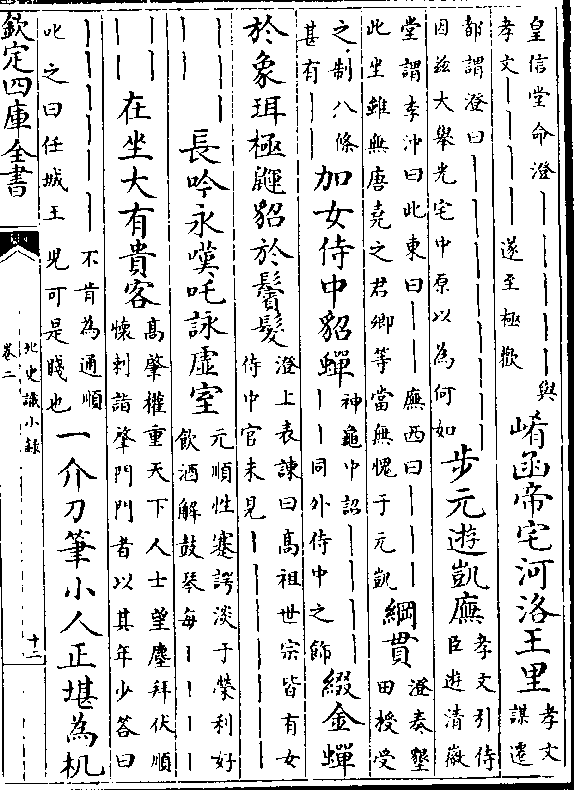 皇信堂命澄｜｜｜｜｜｜與
孝文｜｜｜｜遂至極歡
崤函帝宅河洛王里
孝文
謀遷
都謂澄曰｜｜｜｜｜｜｜｜
因兹大舉光宅中原以為何如
步元遊凱廡
孝文引侍
臣遊清徽
堂謂李沖曰此東曰｜｜廡西曰｜｜｜
此坐雖無唐堯之君卿等當無愧于元凱
綱貫
澄奏墾
田授受
之制八條
甚有｜｜
加女侍中貂蟬
神龜中詔｜｜｜｜
｜｜同外侍中之飾
綴金蟬
於象珥極鼲貂於鬢髮
澄上表諫曰髙祖世宗皆有女
侍中官未見｜｜｜｜｜｜
｜｜｜
｜｜｜
長吟永嘆吒詠虛室
元順性蹇諤淡于榮利好
飲酒解鼓琴每｜｜｜｜
｜｜
｜｜
在坐大有貴客
髙肇權重天下人士望塵拜伏順
懷刺詣肇門門者以其年少答曰
｜｜｜｜｜｜不肯為通順
叱之曰任城王兒可是賤也
一介刀筆小人正堪為机
欽定四庫全書
北史識小錄
卷二
十二